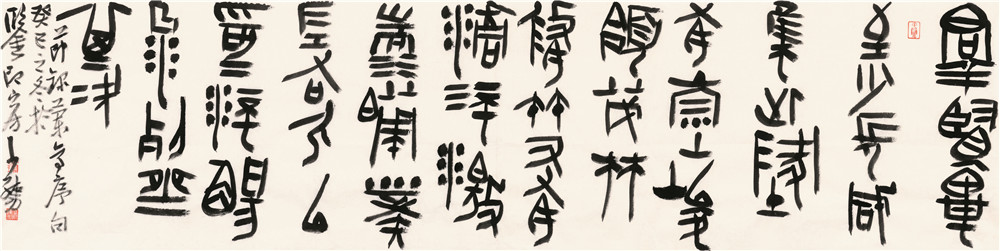 群賢畢
至少長咸
集此地
有崇山峻
領茂林
脩竹又有
清流激
湍映帶
左右引以
為流觴
曲水列坐
其次
節錄蘭亭序句
癸巳之冬於